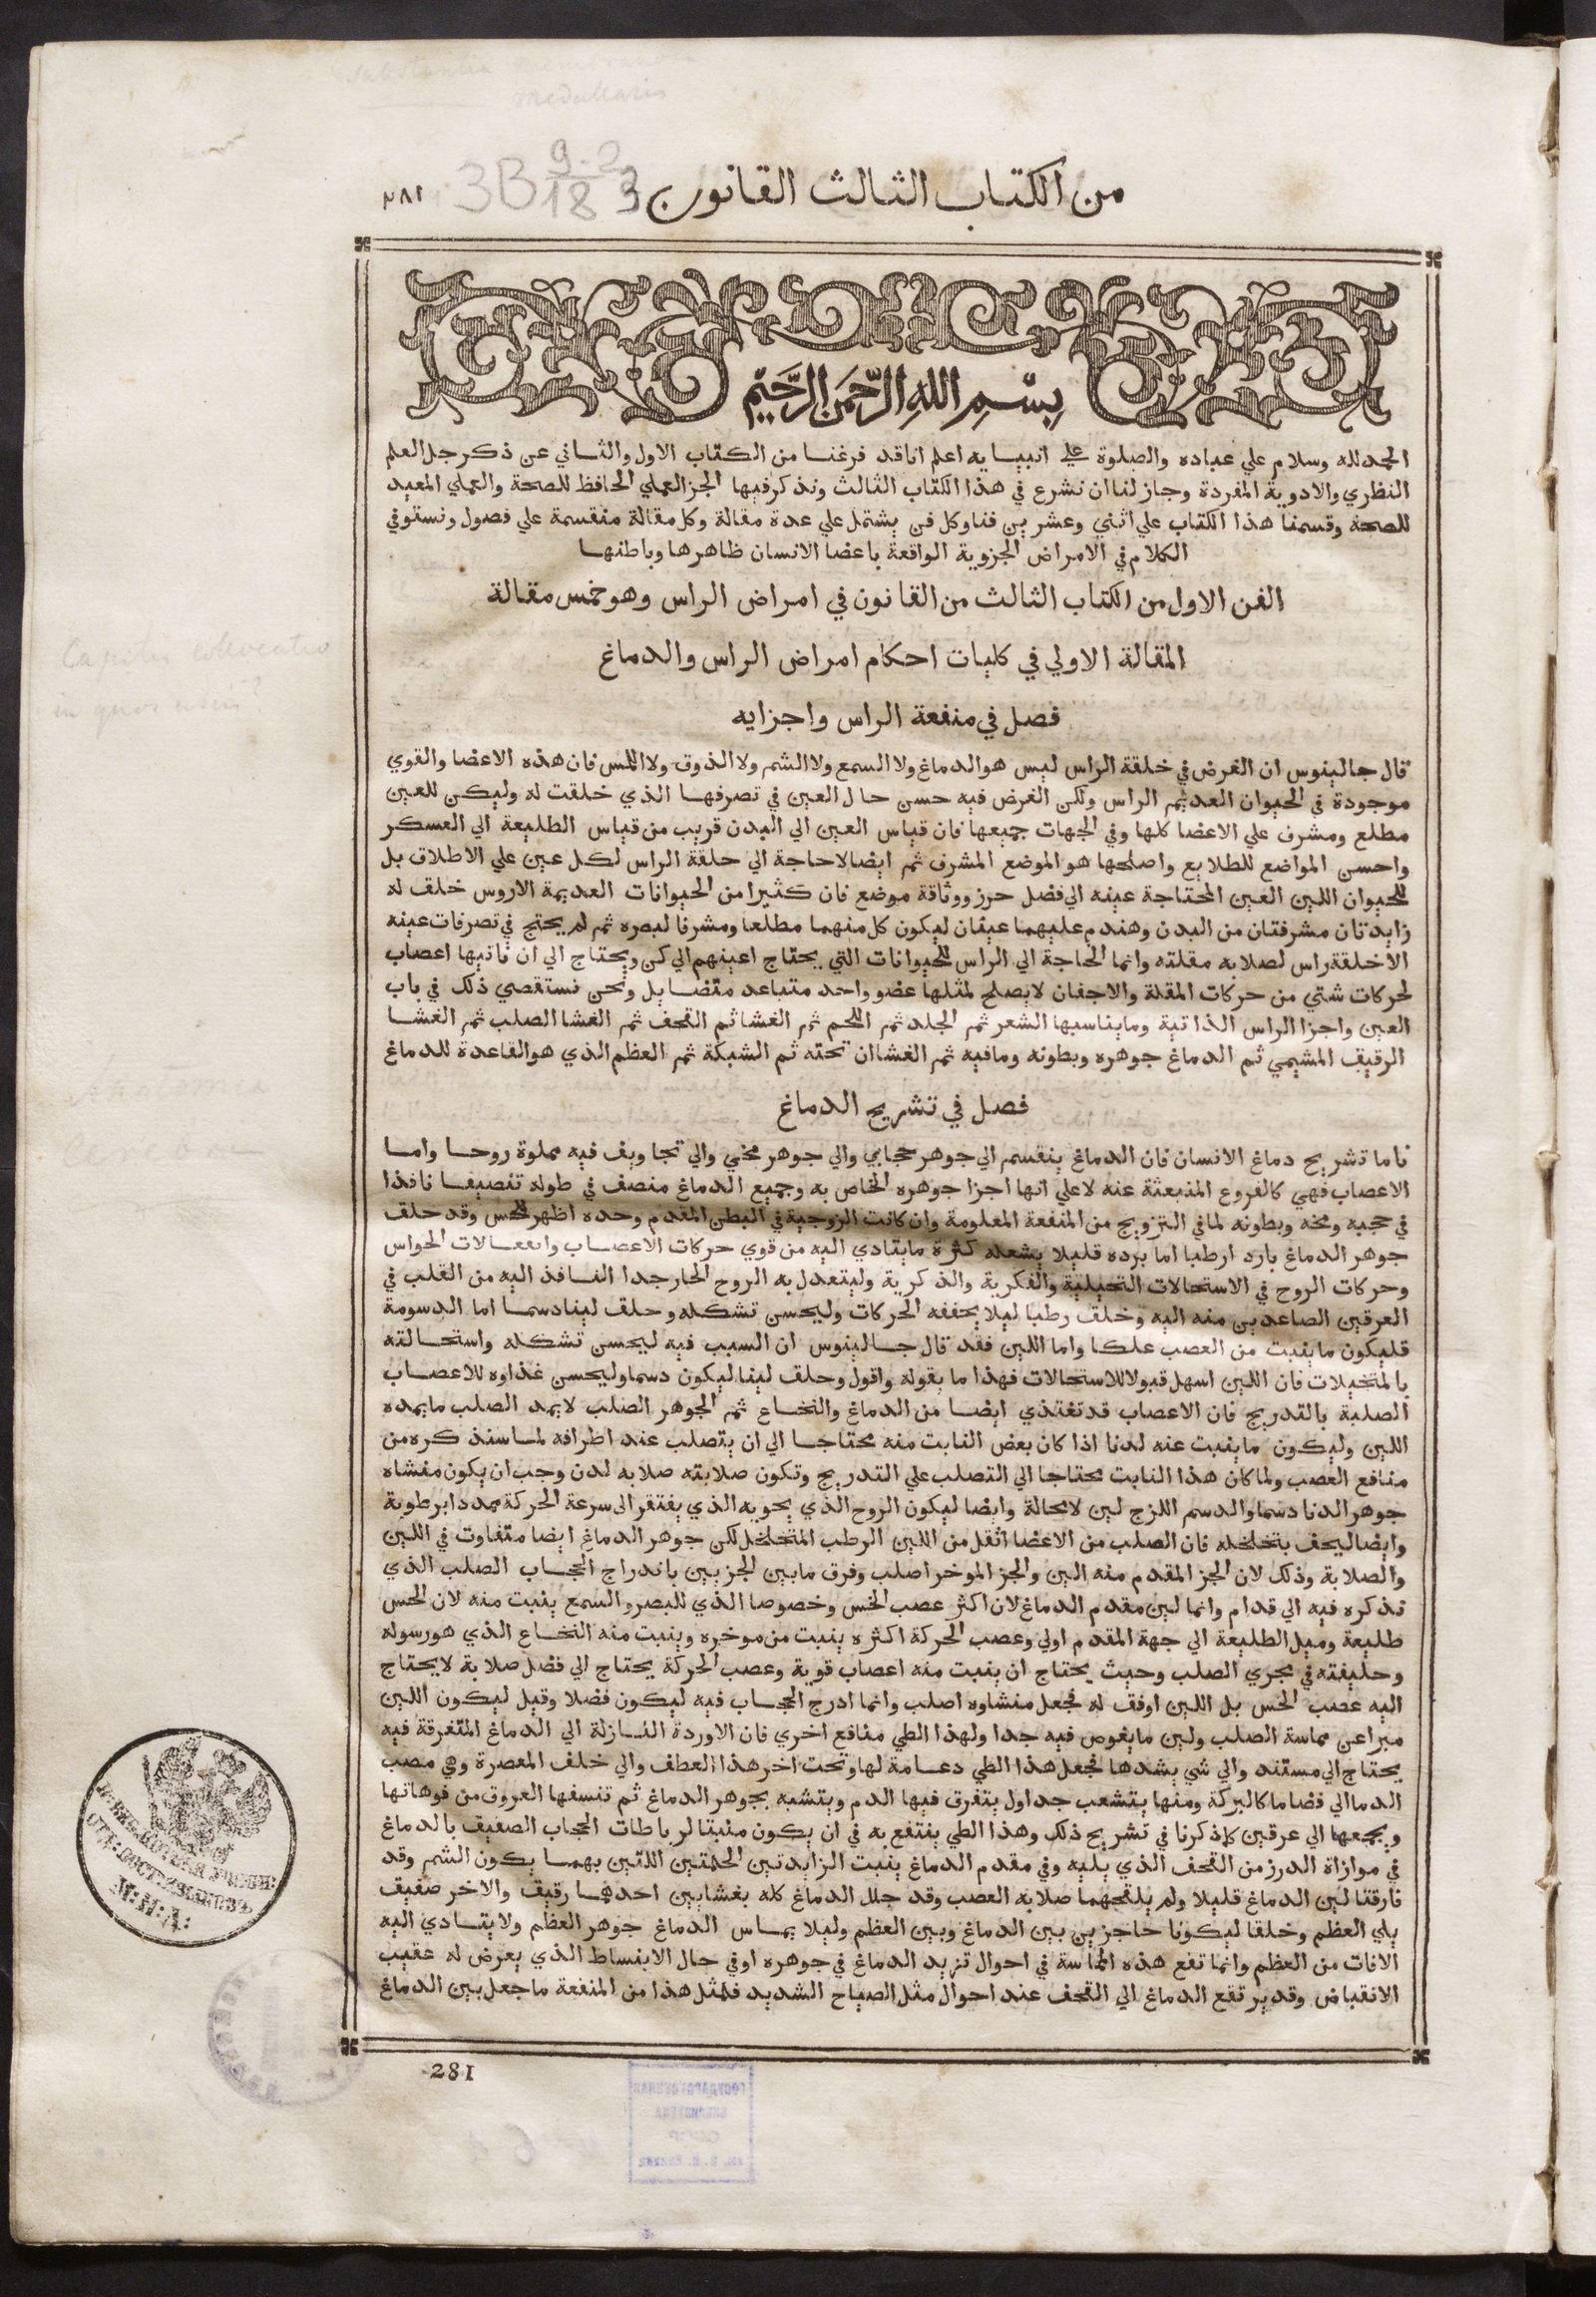 substantia
medullaris
من الكتاب الثالث القانون
٢٨١
3B 9-2
18 3
بِسْمِ اللهِ الرَّحْمَنِ الرَّحِيْمِ
الحمد لله وسلام علي عباده والصلوة علي انبيايه اعلم اناقد فرغنا من الكتاب الاول والثاني عن ذكر جل العلم
النظري والادوية المفردة وجاز لنا ان نشرع في هذا الكتاب الثالث ونذكر فيها الجز العملي الحافظ للصحة والعملي المعيد
للصحة وقسمنا هذا الكتاب علي اثني وعشرين فنا وكل فن يشتمل علي عدة مقالة وكل مقالة منقسمة علي فصول ونستوفي
الكلام في الامراض الجزوية الواقعة باعضا الانسان ظاهرها وباطنها
الفن الاول من الكتاب الثالث من القانون في امراض الراس وهو خمس مقالة
المقالة الاولي في كليات احكام امراض الراس والدماغ
Capitis collocatio
in quos usus
فصل في منفعة الراس واجزايه
قال جالينوس ان الغرض في خلقة الراس ليس هو الدماغ ولا السمع ولا الشم ولا الذوق ولا اللمس فان هذه الاعضا والقوي
موجودة في الحيوان العديم الراس ولكن الغرض فيه حسن حال العين في تصرفها الذي خلقت له وليكن للعين
مطلع ومشرف علي الاعضا كلها وفي الجهات جميعها فان قياس العين الي البدن قريب من قياس الطليعة الي العسكر
واحسن المواضع للطلايع واصلحها هو الموضع المشرف ثم ايضا لاحاجة الي خلقة الراس لكل عين علي الاطلاق بل
للحيوان اللين العين المحتاجة عينه الي فضل حرز ووثاقة موضع فان كثيرا من الحيوانات العديمة الاروس خلق له
زايدتان مشرفتان من البدن وهندم عليهما عينان ليكون كل منهما مطلعا ومشرفا لبصره ثم لم يحتج في تصرفات عينه
الاخلقة راس لصلابه مقلته وانما الحاجة الي الراس للحيوانات التي يحتاج اعينهم الي كن ويحتاج الي ان تاتيها اعصاب
لحركات شتي من حركات المقلة والاجفان لايصلح لمثلها عضو واحد متباعد متضايل ونحن نستقصي ذلك في باب
العين واجزا الراس الذاتية ومايناسبها الشعر ثم الجلد ثم اللحم ثم الغشا ثم القحف ثم الغشا الصلب ثم الغشا
الرقيق المشيمي ثم الدماغ جوهره وبطونه ومافيه ثم الغشاان تحته ثم الشبكة ثم العظم الذي هو القاعدة للدماغ
فصل في تشريح الدماغ
فاما تشريح دماغ الانسان فان الدماغ ينقسم الي جوهر حجابي والي جوهر مخي والي تجاويف فيه مملوة روحا واما
الاعصاب فهي كالفروع المنبعثة عنه لاعلي انها اجزا جوهره الخاص به وجميع الدماغ منصف في طوله تنصيفا نافذا
في حجبه ومخه وبطونه لما في التزويج من المنفعة المعلومة وان كانت الزوجية في البطن المقدم وحده اظهر للحس وقد خلق
جوهر الدماغ بارد ارطبا اما برده قليلا يشعله كثرة مايتادي اليه من قوي حركات الاعصاب وانفعالات الحواس
وحركات الروح في الاستحالات التخيلية والفكرية والذكرية وليتعدل به الروح الحار جدا النافذ اليه من القلب في
العرقين الصاعدين منه اليه وخلق رطبا ليلا يجففه الحركات وليحسن تشكله وخلق لينا دسما اما الدسومة
فليكون ماينبت من العصب علكا واما اللين فقد قال جالينوس ان السبب فيه ليحسن تشكله واستحالته
بالمتخيلات فان اللين اسهل قبولا للاستحالات فهذا ما يقوله واقول وخلق لينا ليكون دسما وليحسن غذاوه للاعصاب
الصلبة بالتدريج فان الاعصاب قد تغتذي ايضا من الدماغ والنخاع ثم الجوهر الصلب لايمد الصلب مايمده
اللين وليكون ماينبت عنه لدنا اذا كان بعض النابت منه محتاجا الي ان يتصلب عند اطرافه لما سنذكره من
منافع العصب ولما كان هذا النابت محتاجا الي التصلب علي التدريج وتكون صلابته صلابه لدن وجب ان يكون منشاه
جوهر الدنا دسما والدسم اللزج لين لامحالة وايضا ليكون الروح الذي يحويه الذي يفتقر الي سرعة الحركة ممدا برطوبة
وايضا ليخف بتخلخله فان الصلب من الاعضا اثقل من اللين الرطب المتخلخل لكن جوهر الدماغ ايضا متفاوت في اللين
والصلابة وذلك لان الجز المقدم منه الين والجز الموخر اصلب وفرق مابين الجزيين باندراج الحجاب الصلب الذي
نذكره فيه الي قدام وانما لين مقدم الدماغ لان اكثر عصب الحس وخصوصا الذي للبصر والسمع ينبت منه لان الحس
طليعة وميل الطليعة الي جهة المقدم اولي وعصب الحركة اكثره ينبت من موخره وينبت منه النخاع الذي هو رسوله
وخليفته في مجري الصلب وحيث يحتاج ان ينبت منه اعصاب قوية وعصب الحركة يحتاج الي فضل صلابة لايحتاج
اليه عصب الحس بل اللين اوفق له فجعل منشاوه اصلب وانما ادرج الحجاب فيه ليكون فضلا وقيل ليكون اللين
مبرا عن مماسة الصلب ولين مايغوص فيه جدا ولهذا الطي منافع اخري فان الاوردة النازلة الي الدماغ المتفرقة فيه
يحتاج الي مستند والي شي يشدها فجعل هذا الطي دعامة لها وتحت اخر هذا العطف والي خلف المعصرة وهي مصب
الدما الي فضا ما كالبركة ومنها يتشعب جداول يتفرق فيها الدم ويتشبه بجوهر الدماغ ثم تنسفها العروق من فوهاتها
ويجمعها الي عرقين كما ذكرنا في تشريح ذلك وهذا الطي ينتفع به في ان يكون منبتا لرباطات الحجاب الصفيق بالدماغ
في موازاة الدرز من القحف الذي يليه وفي مقدم الدماغ ينبت الزايدتين الحلمتين اللتين بهما يكون الشم وقد
فارقتا لين الدماغ قليلا ولم يلحقهما صلابه العصب وقد جلل الدماغ كله بغشايين احدهما رقيق والاخر صفيق
يلي العظم وخلقا ليكونا حاجزين بين الدماغ وبين العظم وليلا يماس الدماغ جوهر العظم ولا يتادي اليه
الافات من العظم وانما تقع هذه المماسة في احوال تزيد الدماغ في جوهره اوفي حال الانبساط الذي يعرض له عقيب
الانقباض وقد يرتفع الدماغ الي القحف عند احوال مثل الصياح الشديد فلمثل هذا من المنفعة ما جعل بين الدماغ
281